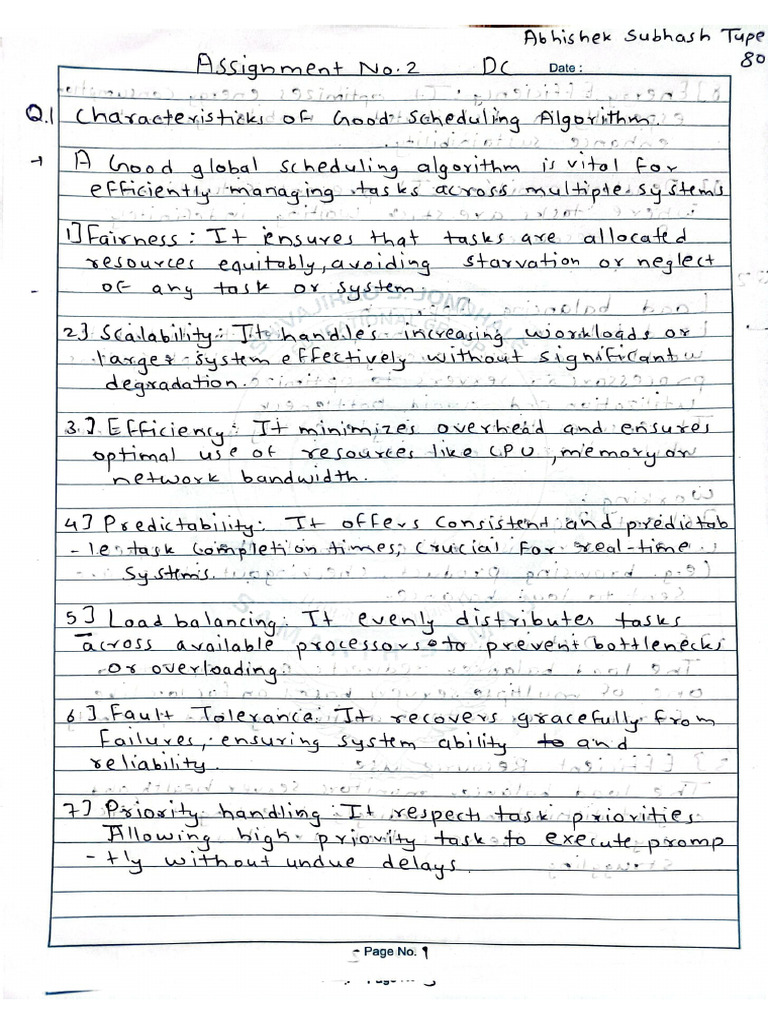 Abhishek Subhash Tupe
80
Assignment No. 2 DC Date :
Q.1 Characteristicks of Good Scheduling Algorithm
→ A Good global scheduling algorithm is vital for
efficiently managing tasks across multiple systems
1] Fairness : It ensures that tasks are allocated
resources equitably, avoiding starvation or neglect
of any task or system.
2] Scalability: It handles increasing workloads or
larger system effectively without significant
degradation.
3.] Efficiency: It minimizes overhead and ensures
optimal use of resources like CPU, memory or
network bandwidth.
4] Predictability: It offers consistent and predictab
- le task completion times, crucial for real-time
systems.
5] Load balancing: It evenly distributes tasks
across available processors to prevent bottlenecks
or overloading.
6] Fault Tolerance: It recovers gracefully from
failures, ensuring system ability to and
reliability.
7] Priority handling: It respects task priorities
Allowing high priority task to execute promp
- tly without undue delays.
Page No. 1